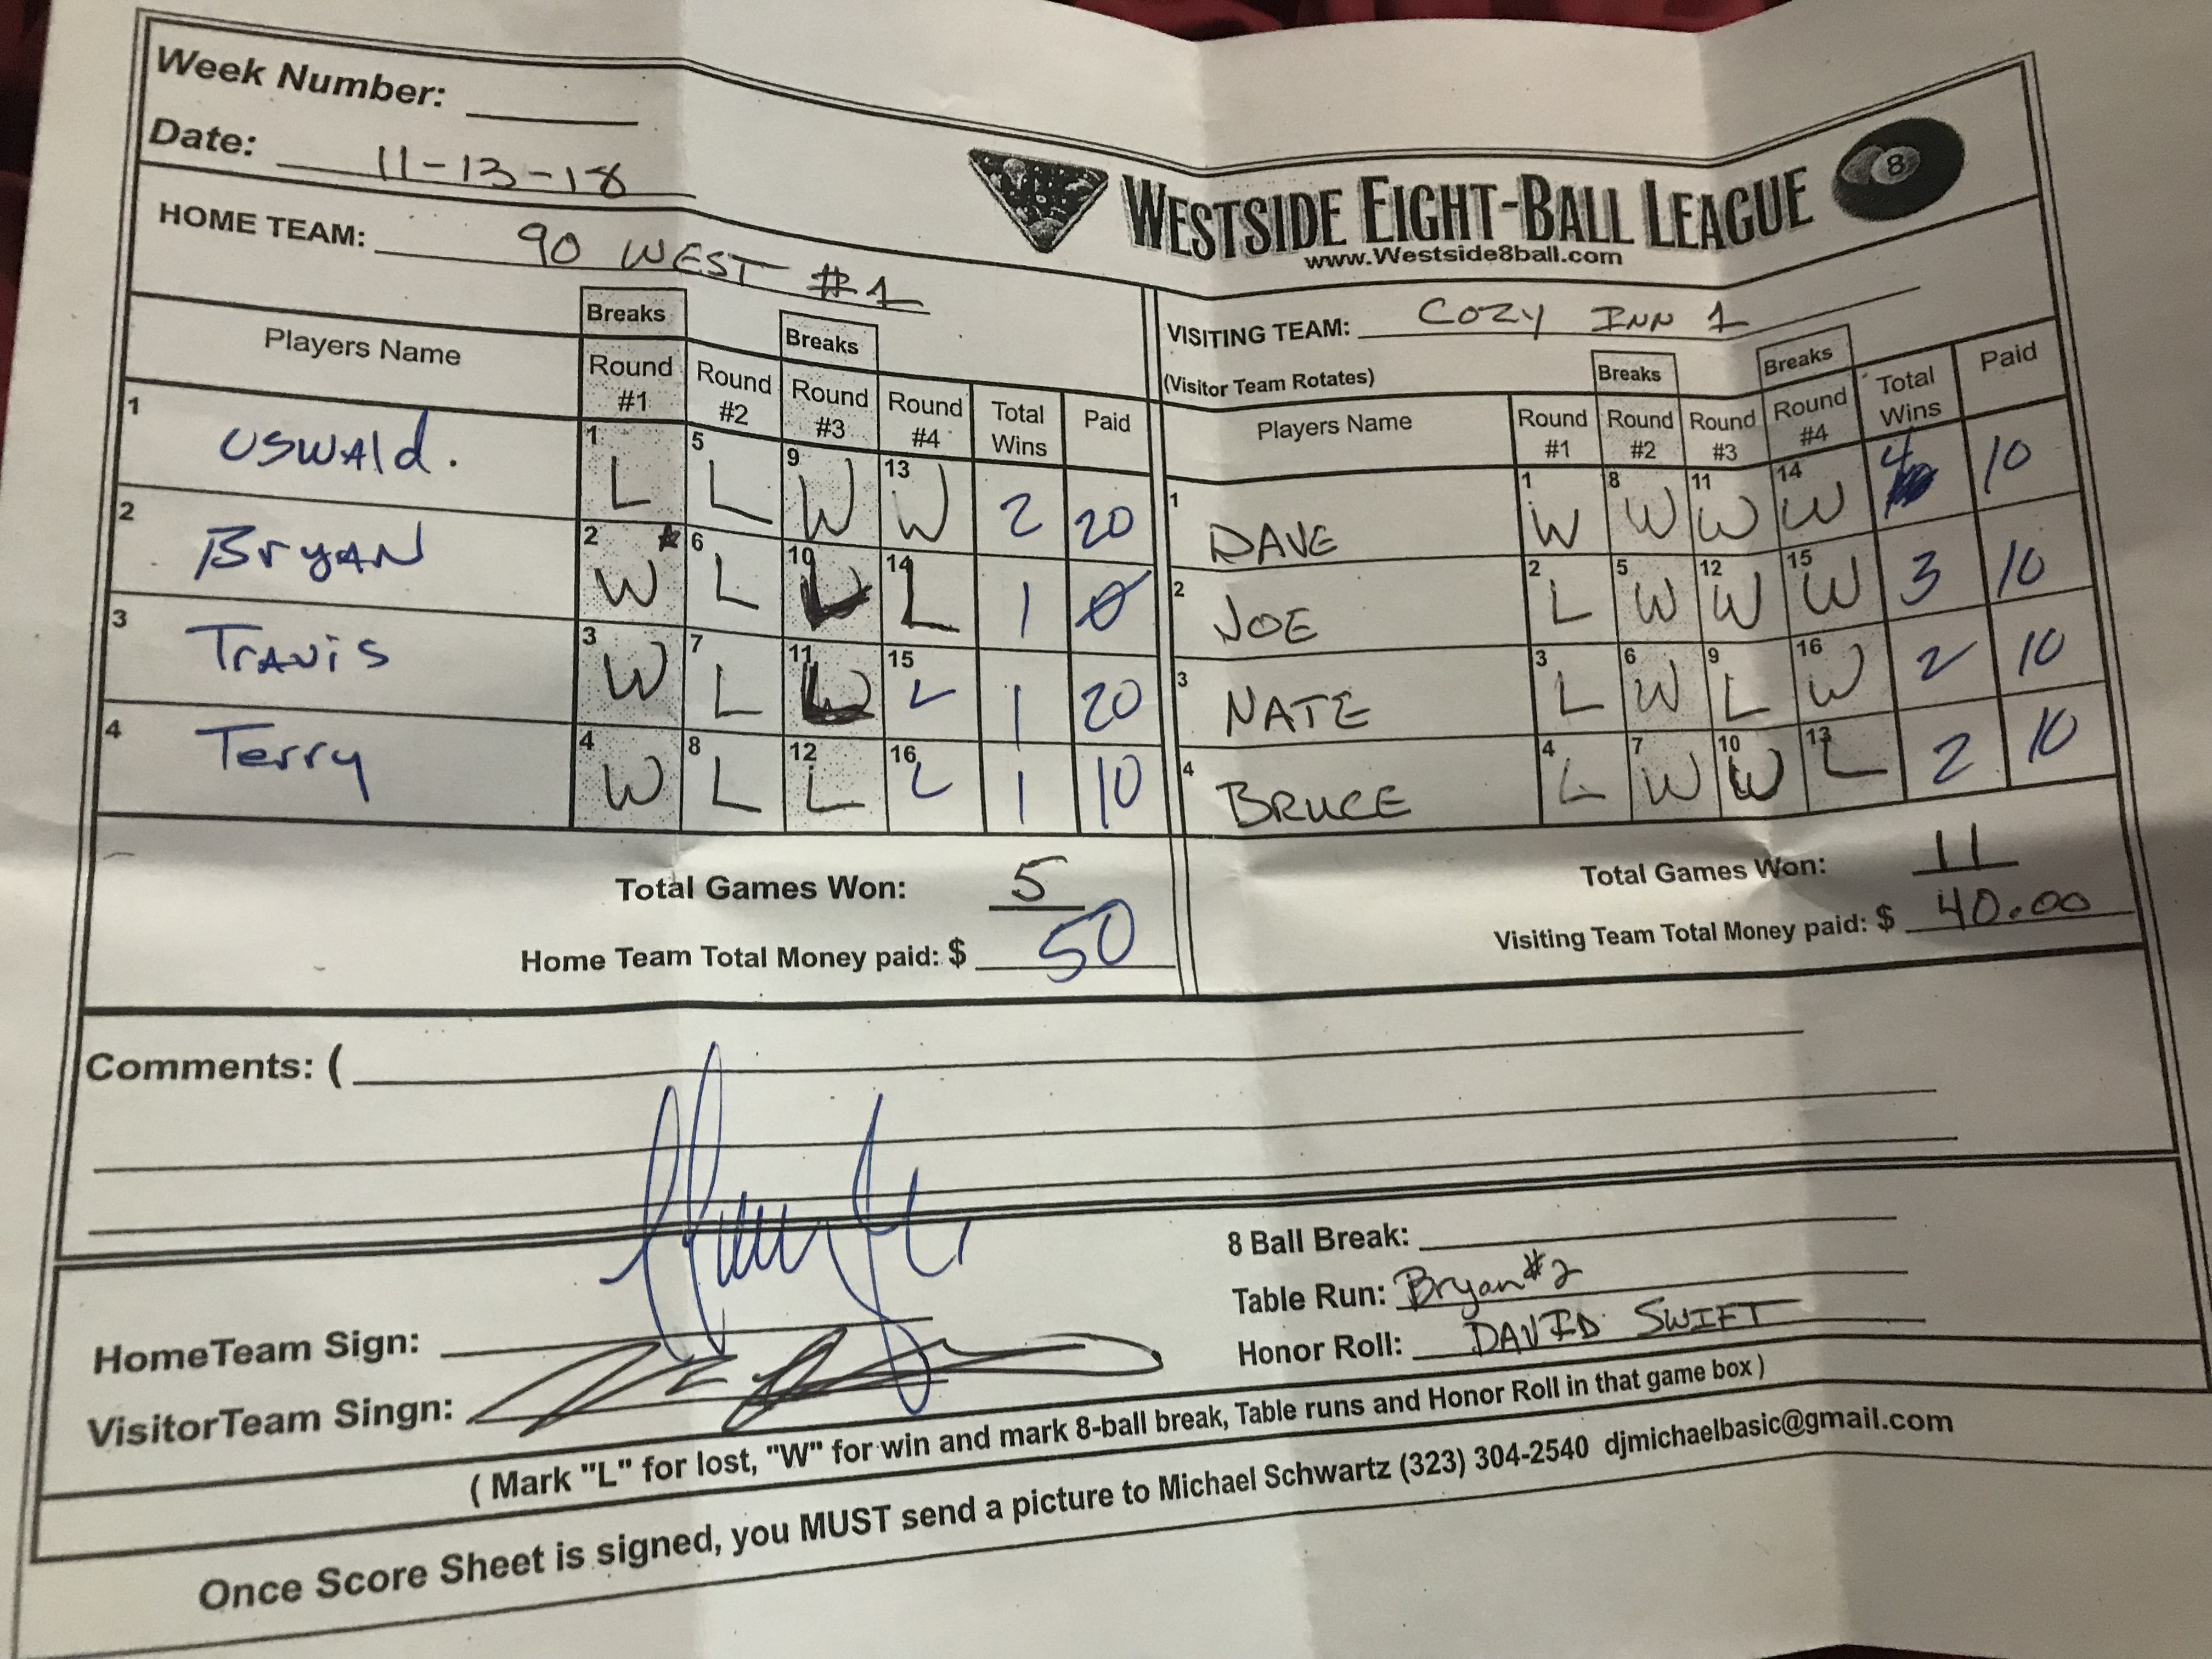 Week Number:
Date: 11-13-18
WESTSIDE EIGHT-BALL LEAGUE
8
www.Westside8ball.com
HOME TEAM: 90 WEST #1
VISITING TEAM: COZY INN 1
(Visitor Team Rotates)
Players Name Breaks Round #1 Round #2 Breaks Round #3 Round #4 Total Wins Paid
1 OSWAld. 1 L 5 L 9 W 13 W 2 20
2 BryAN 2 W * 6 L 10 L 14 L 1 0
3 TrAViS 3 W 7 L 11 L 15 L 1 20
4 Terry 4 W 8 L 12 L 16 L 1 10
Total Games Won: 5
Home Team Total Money paid: $ 50
Players Name Round #1 Breaks Round #2 Round #3 Breaks Round #4 Total Wins Paid
1 DAVE 1 W 8 W 11 W 14 W 4 10
2 JOE 2 L 5 W 12 W 15 W 3 10
3 NATE 3 L 6 W 9 L 16 W 2 10
4 BRUCE 4 L 7 W 10 W 13 L 2 10
Total Games Won: 11
Visiting Team Total Money paid: $ 40.00
Comments: (
8 Ball Break:
Table Run: Bryan #2
Honor Roll: DAVID SWIFT
HomeTeam Sign:
VisitorTeam Singn:
( Mark "L" for lost, "W" for win and mark 8-ball break, Table runs and Honor Roll in that game box )
Once Score Sheet is signed, you MUST send a picture to Michael Schwartz (323) 304-2540 djmichaelbasic@gmail.com